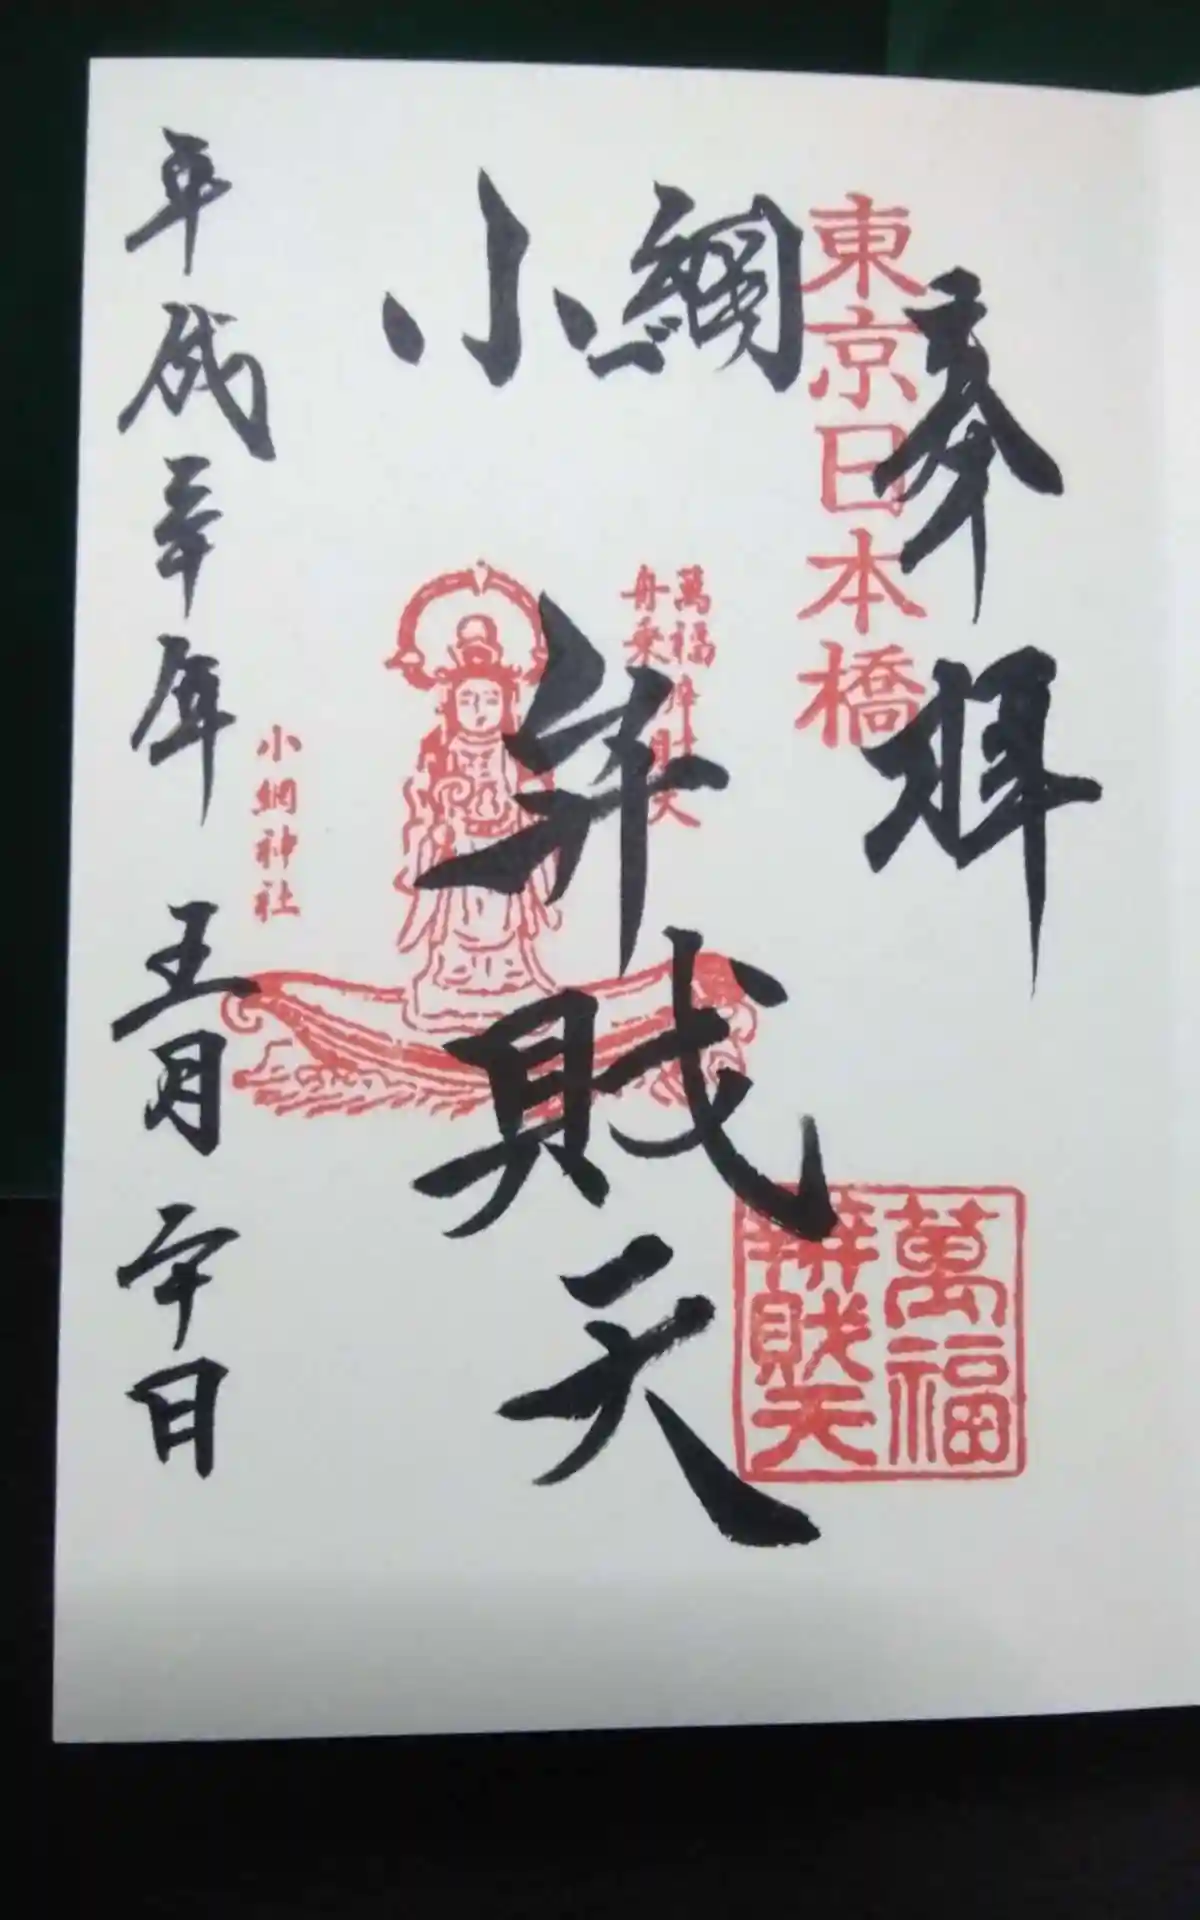 奉拝
東京日本橋
小網
弁財天
萬福
舟乗弁財天
萬福
辨財天
小網神社
平成三十年五月二十日